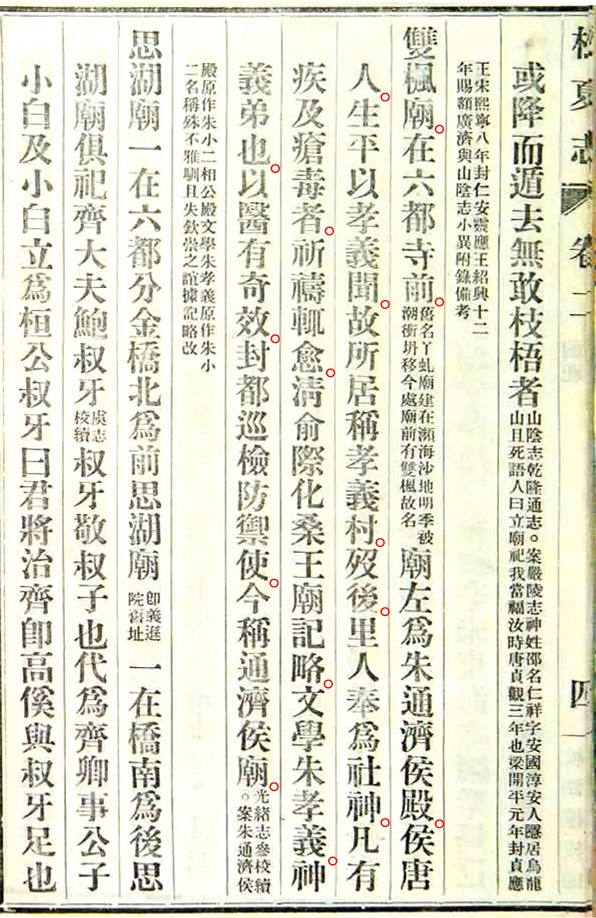 松夏志 卷二 四
或降而遁去無敢枝梧者山陰志乾隆通志。案嚴陵志神姓邵名仁祥字安國淳安人隱居烏龍
山且死語人曰立廟祀我當福汝時唐貞觀三年也梁開平元年封貞應
王宋熙寧八年封仁安震應王紹興十二
年賜額廣濟與山陰志小異附錄備考
雙楓廟在六都寺前舊名丫虬廟建在瀕海沙地明季被
潮衝坍移今處廟前有雙楓故名廟左爲朱通濟侯殿侯唐
人生平以孝義聞故所居稱孝義村歿後里人奉爲社神凡有
疾及瘡毒者祈禱輒愈清俞際化桑王廟記略文學朱孝義神
義弟也以醫有奇效封都巡檢防禦使今稱通濟侯廟光緒志叅校續
。案朱通濟侯
殿原作朱小二相公殿文學朱孝義原作朱小
二名稱殊不雅馴且失欽崇之誼據記略改
思湖廟一在六都分金橋北爲前思湖廟卽義遜
院舊址一在橋南爲後思
湖廟俱祀齊大夫鮑叔牙虞志
校續叔牙敬叔子也代爲齊卿事公子
小白及小白立爲桓公叔牙曰君將治齊卽高傒與叔牙足也